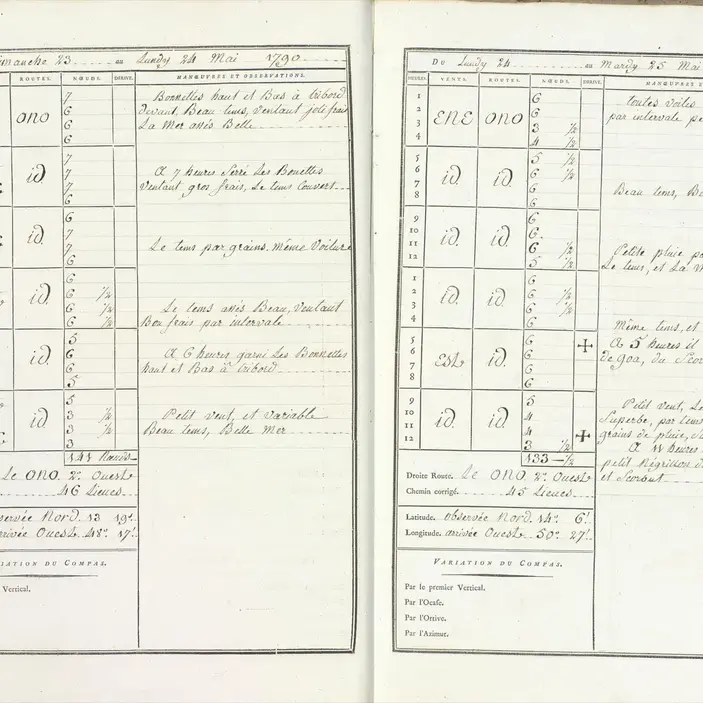 imanche 23 au Lundy 24 Mai 1790
ROUTES. NŒUDS. DERIVE. MANŒUVRES ET OBSERVATIONS.
7 Bonnettes haut et Bas à tribord
ONO 6 devant, Beau tems, Ventant joli frais
6 La Mer assés Belle
6
7
id 7 A 7 heures Serré Les Bonettes
7 Ventant gros frais, Le tems Couvert
6
6
id. 7
7 Le tems par grains, même Voilure
6
6
id. 6 1/2 Le tems assés Beau, Ventant
6 1/2 Bon frais par intervale
6 1/2
5
id. 6 A 6 heures garni Les Bonnettes
6 haut et Bas à tribord
5
5
id 3 1/2 Petit vent, et variable
3 1/2 Beau tems, Belle Mer
3
141 Nœuds
Le ONO 2° Ouest
46 Lieues
servée Nord 13 19'
arrivée Ouest 48° 17'
IATION DU COMPAS.
Vertical.
DU Lundy 24 au Mardy 25 Mai
HEURES. VENTS. ROUTES. NŒUDS. DERIVE. MANŒUVRES ET
1 6 toutes voiles
2 ENE ONO 6 par intervale pe
3 3 1/2
4 4 1/2
5 5 1/2
6 id. id. 6 1/2
7 6
8 6 Beau tems, Be
9 6
10 id. id. 6
11 6 1/2 Petite pluie pa
12 5 1/2 Le tems, et La M
1 6
2 id. id. 6 1/2
3 6 1/2
4 6 Même tems, et
5 6 + A 5 heures il
6 Est id. 6 de goa, du Scor
7 6
8 6
9 5 Petit vent, Le
10 id. id. 4 Superbe, par tems
11 4 grains de pluie,
12 3 1/2 + A 11 heures
133 1/2 petit Négrillon d
Droite Route. Le ONO 2° Ouest et Scorbut
Chemin corrigé. 45 Lieues
Latitude. observée Nord 14° 6'
Longitude. arrivée Ouest 50° 27'
VARIATION DU COMPAS.
Par le premier Vertical.
Par l'Ocase.
Par l'Ortive.
Par l'Azimut.